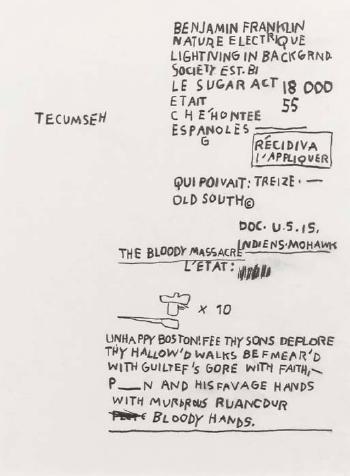 BENJAMIN FRANKLIN
NATURE ELECTRIQUE
LIGHTNING IN BACKGRND
SOCIETY EST. BI
LE SUGAR ACT 18 000
ETAIT 55
TECUMSEH
CHÉHONTEE
ESPANOLES
G
RÉCIDIVA
L'APPLIQUER
QUI POIVAIT: TREIZE. —
OLD SOUTH©
DOC. U.S. 15,
INDIENS-MOHAWK
THE BLOODY MASSACRE
L'ETAT:
x 10
UNHAPPY BOSTON! FEE THY SONS DEPLORE
THY HALLOW'D WALKS BEFMEAR'D
WITH GUILTEF'S GORE WITH FAITH,—
P___N AND HIS FAVAGE HANDS
WITH MURDROUS RUANCOUR
BLOODY HANDS.